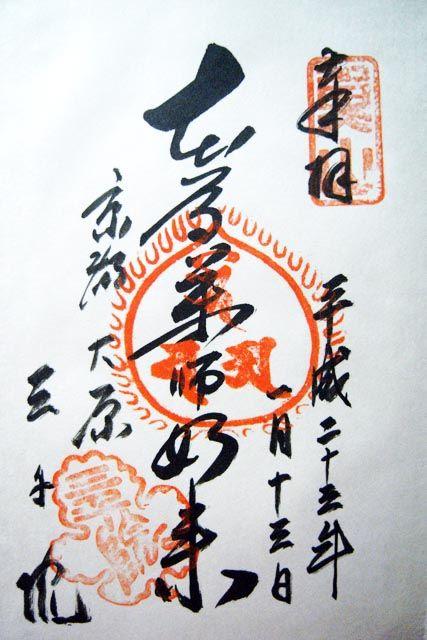 奉拝
平成二十三年
一月十三日
本尊薬師如来
京都大原
三千院